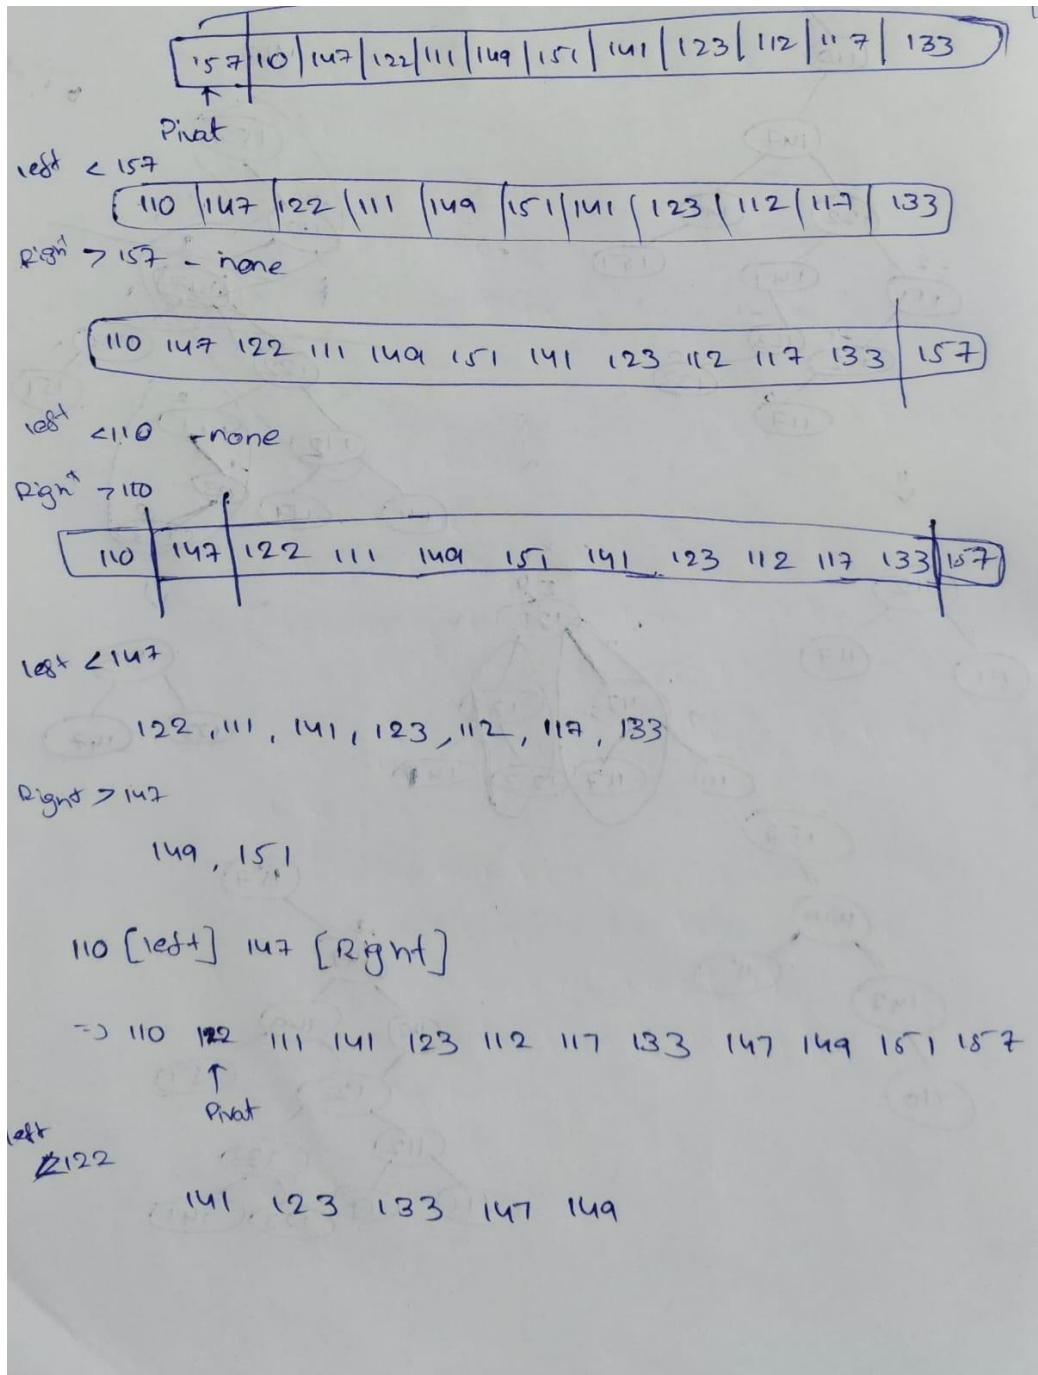 157 | 110 | 147 | 122 | 111 | 149 | 151 | 141 | 123 | 112 | 117 | 133
Pivat
left < 157
110 | 147 | 122 | 111 | 149 | 151 | 141 | 123 | 112 | 117 | 133
Right > 157 - none
110 147 122 111 149 151 141 123 112 117 133 | 157
left <110 - none
Right > 110
110 | 147 | 122 111 149 151 141 123 112 117 133 | 157
left < 147
122, 111, 141, 123, 112, 117, 133
Right > 147
149, 151
110 [left] 147 [Right]
=> 110 122 111 141 123 112 117 133 147 149 151 157
Pivat
left
<122
141 123 133 147 149